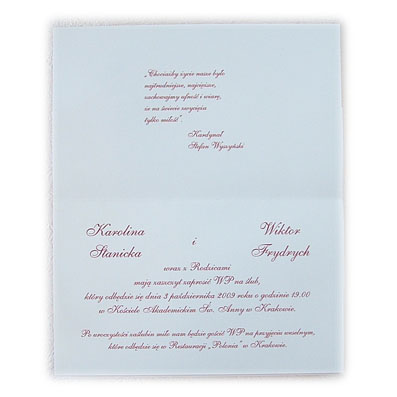 „Chociażby życie nasze było
najtrudniejsze, najcięższe,
zachowajmy ufność i wiarę,
że na świecie zwycięża
tylko miłość".
Kardynał
Stefan Wyszyński
Karolina Wiktor
Stanicka i Frydrych
wraz z Rodzicami
mają zaszczyt zaprosić WP na ślub,
który odbędzie się dnia 3 października 2009 roku o godzinie 19.00
w Kościele Akademickim Św. Anny w Krakowie.
Po uroczystości zaślubin miło nam będzie gościć WP na przyjęciu weselnym,
które odbędzie się w Restauracji „Polonia" w Krakowie.